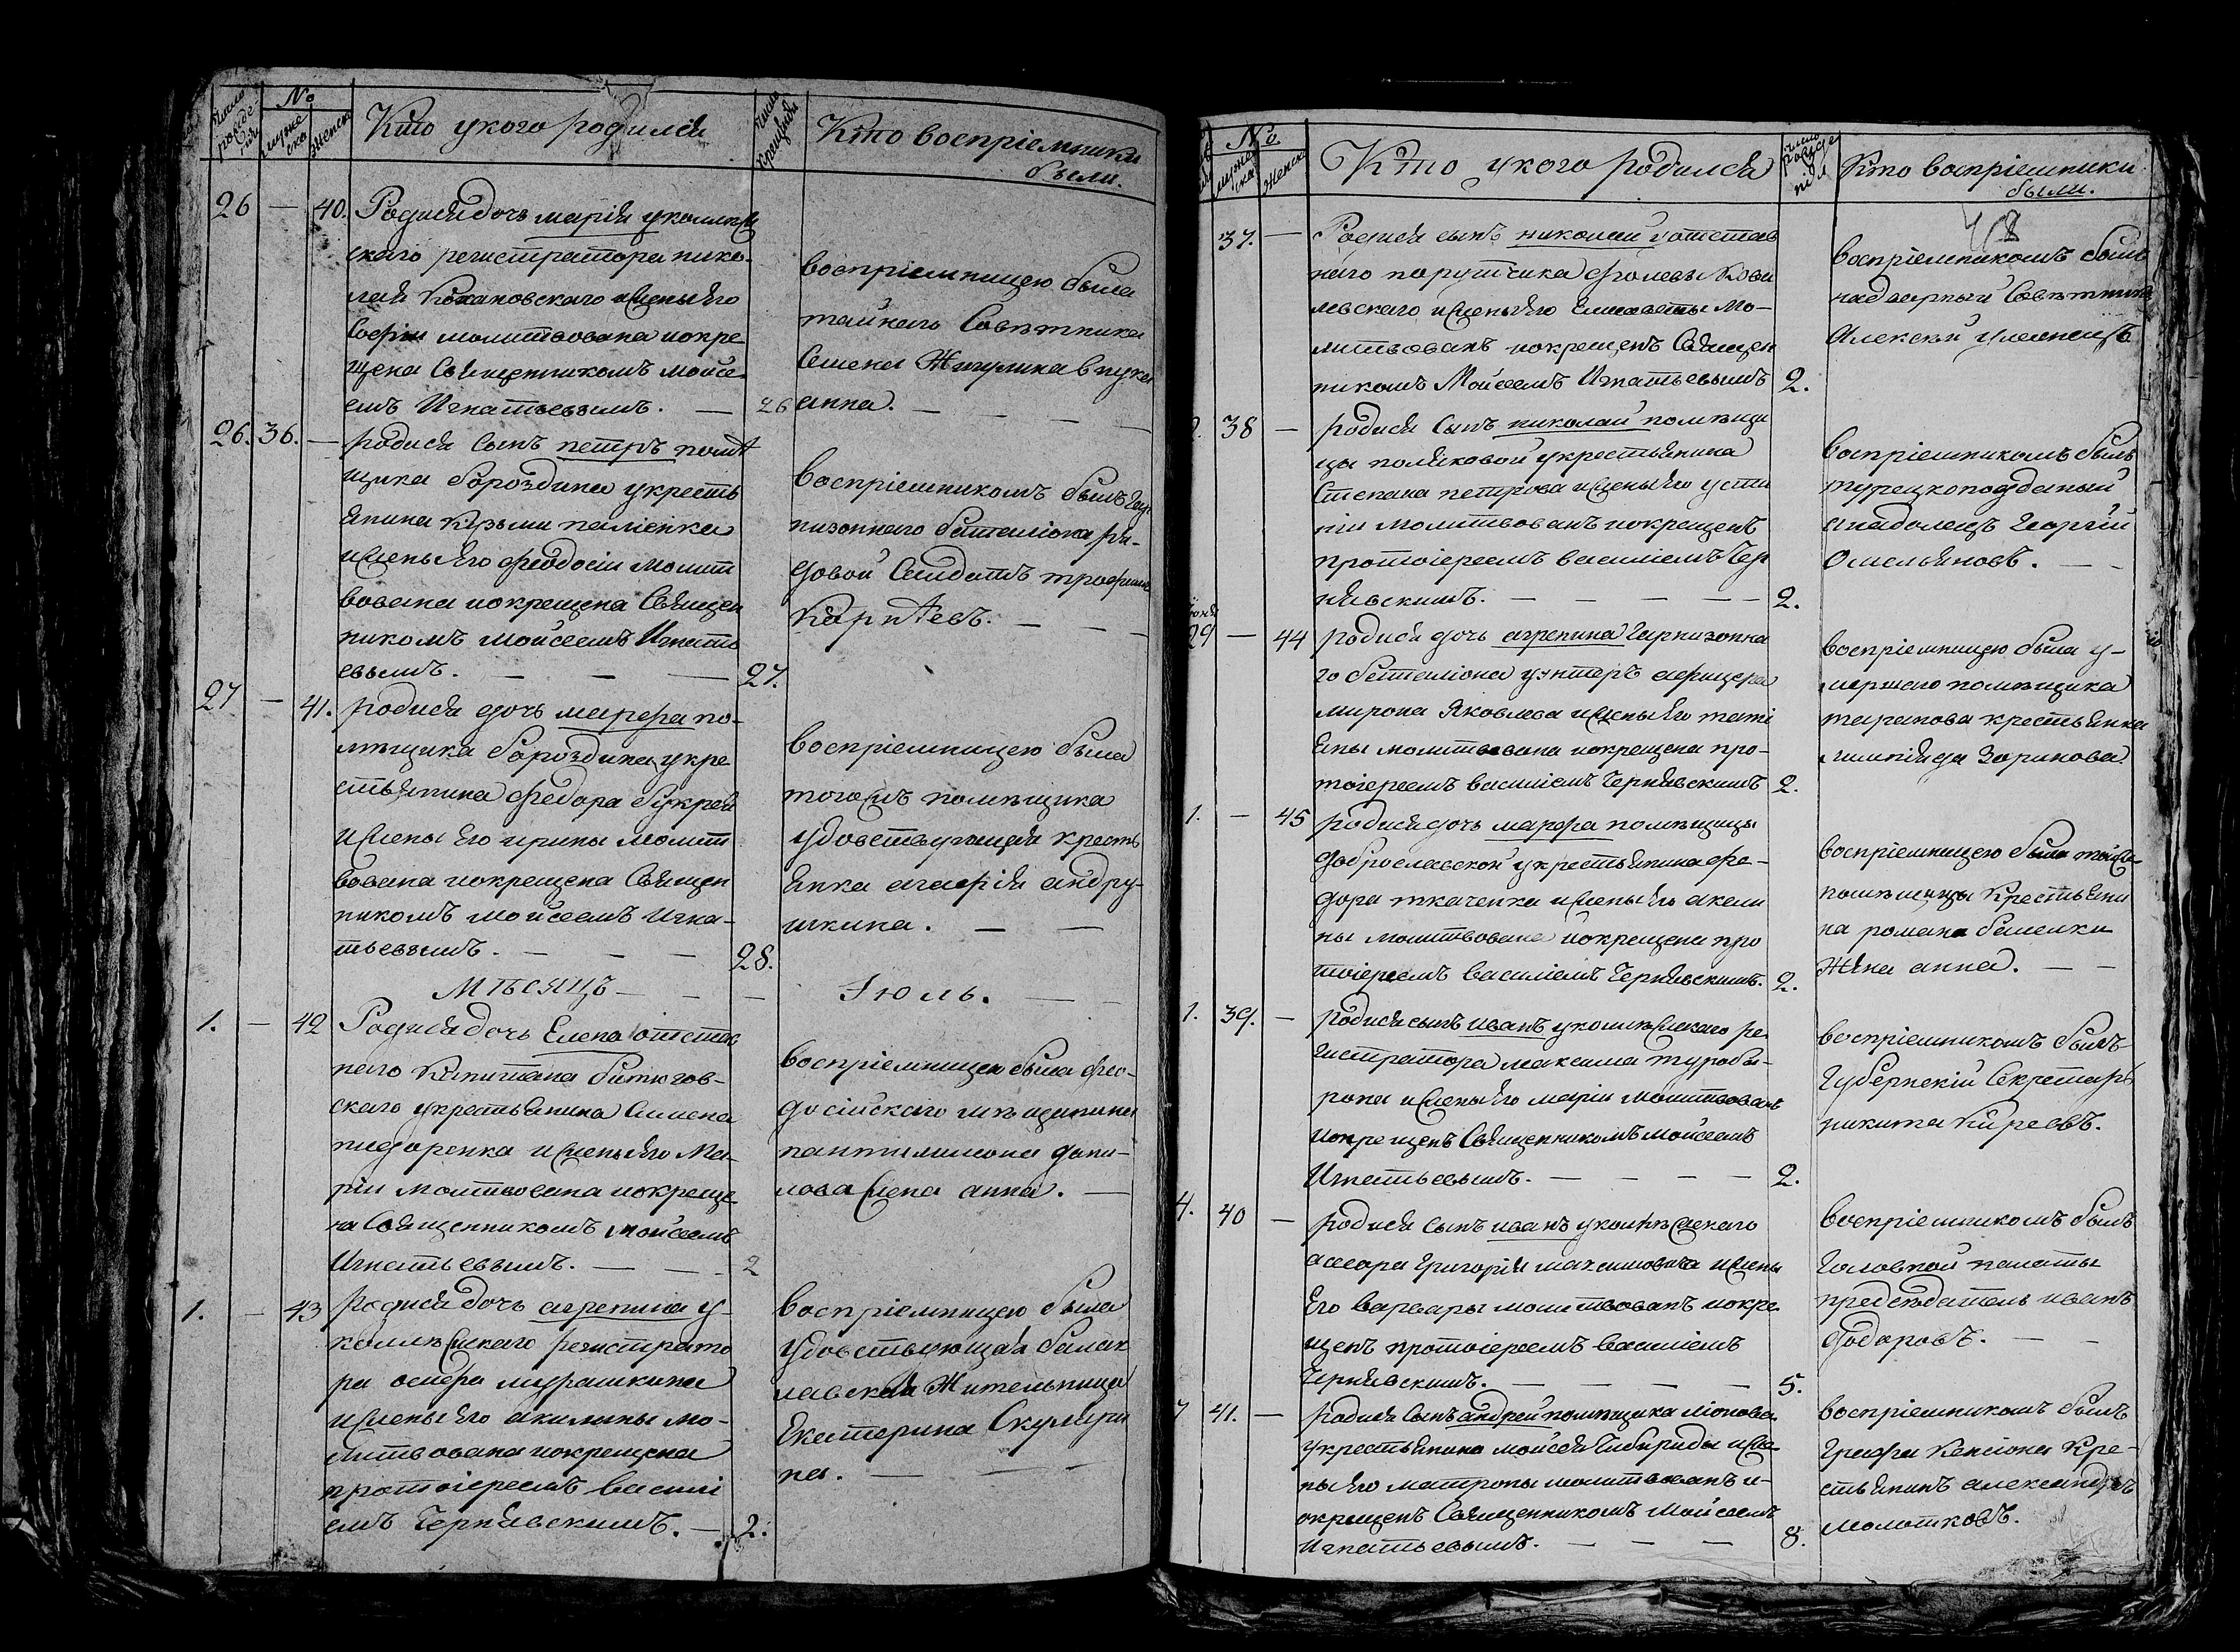 Число рожде нія
№
мужеска
женска
Кто укого родился
число крещенія
Кто воспріемники
были.
26 — 40. Родися дочь марія уколлеж
скаго регистратора нико-
лая Кохановскаго ижены Его
Софіи молитвована иокре
щена Священникомъ Мойсе
емъ Игнатьевымъ. — 26
воспріемницею была
тайнаго Совѣтника
Семена Жигулина внука
анна. — — —
26. 36. — родися Сынъ петръ помѣ
щика бороздина укресть
янина Кузьмы
ижены Его феодосіи молит
вована иокрещена Священ
никомъ мойсеемъ Игнать
евымъ. — — — 27.
воспріемникомъ былъ Гар
низоннаго баталіона ря-
довой Салдатъ трофимъ
Карпѣевъ. — — —
27 — 41. родися дочь марфа по-
мѣщика бороздина укре
стьянина федора
ижены Его ирины молит
вована иокрещена Священ
никомъ мойсеемъ игна-
тьевымъ. — — — 28.
воспріемницею была
тогожъ помѣщика
удовствующая кресть
янка агафія андру-
шкина. — —
МѢСЯЦЪ — — — Іюль. — —
1. — 42 Родися дочь Елена уотстав
наго Капитана
скаго укрестьянина Симена
ижены Его Ма-
ріи молитвована иокреще
на Священникомъ мойсеемъ
Игнатьевымъ. — — 2
воспріемницею была фео-
досійскаго мѣщанина
пантилимона дани-
лова жена анна. —
1. — 43 родися дочь агрепина у-
коллежскаго регистрато
ра осифа мурашкина
ижены Его акилины мо-
литвована иокрещена
протоіереемъ васілі
емъ Чернявскимъ. — 2.
воспріемницею была
удовствующая балак
лавская Жительница
Екатерина Скуляри
на. — — —
№
мужеска
женска
Кто укого родился
число
Кто воспріемники
были.
48
37. — Родися сынъ николай уотстав
наго порутчика
левскаго ижены Его Елисаветы Мо-
литвованъ иокрещенъ Священ
никомъ Мойсеемъ Игнатьевымъ 2.
воспріемникомъ былъ
надворный Совѣтникъ
Алексѣй
38 — родися Сынъ николай помѣщи
цы поляковой укрестьянина
Степана петрова ижены Его усти
ніи молитвованъ иокрещенъ
протоіереемъ василіемъ Чер
нявскимъ. — — — — 2.
воспріемникомъ былъ
турецкоподданый
анадолецъ Георгій
Омельяновъ. — —
29 — 44 родися дочь агрепина Гарнизонна
го баталіона унтеръ афицера
мирона Яковлева ижены Его таті
яны молитвована иокрещена про-
тоіереемъ василіемъ Чернявскимъ 2.
воспріемницею была у-
мершаго помѣщика
таранова крестьянка
1. — 45 родися дочь марфа помѣщицы
доброславской укрестьянина фе-
дора ткаченка ижены Его акели
ны молитвована иокрещена про
тоіереемъ василіемъ Чернявскимъ. 2.
воспріемницею была тойже
помѣщицы Крестьяни
на романа
Жена анна. — —
1. 39. — родися сынъ иванъ уколлежскаго ре
гистратора максима туроба-
рова ижены Его маріи молитвованъ
иокрещенъ Священникомъ мойсеемъ
Игнатьевымъ. — — — — 2.
воспріемникомъ былъ
Губернскій Секретарь
никита Киреевъ.
4. 40 — родися сынъ иванъ уколлежскаго
асесора Григорія максимовича ижены
Его варвары молитвованъ иокре
щенъ протоіереемъ василіемъ
Чернявскимъ. — — — — 5.
воспріемникомъ былъ
Головной палаты
председатель иванъ
федоровъ. — —
7 41. — родися Сынъ андрей помѣщика
укрестьянина мойсея Чибириды иже-
ны Его матроны молитвованъ и-
окрещенъ Священникомъ Мойсеемъ
Игнатьевымъ. — — — 8.
воспріемникомъ былъ
Графа Кенсіона Кре-
стьянинъ александръ
молотковъ.